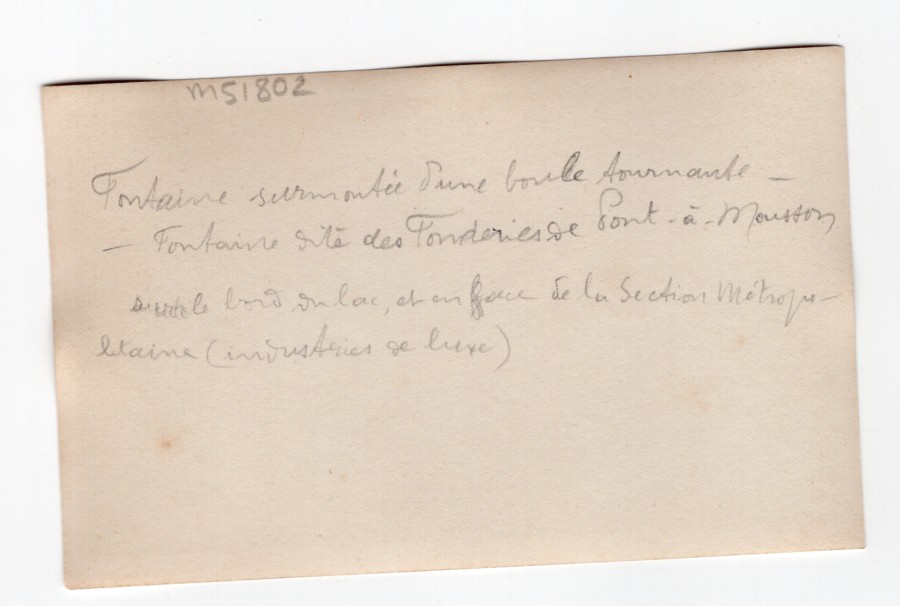 m51802
Fontaine surmontée d'une boule tournante —
— Fontaine dité des Fonderies de Pont-à-Mousson
sur le bord du lac, et en face de la Section Métropo-
litaine (industries de luxe)